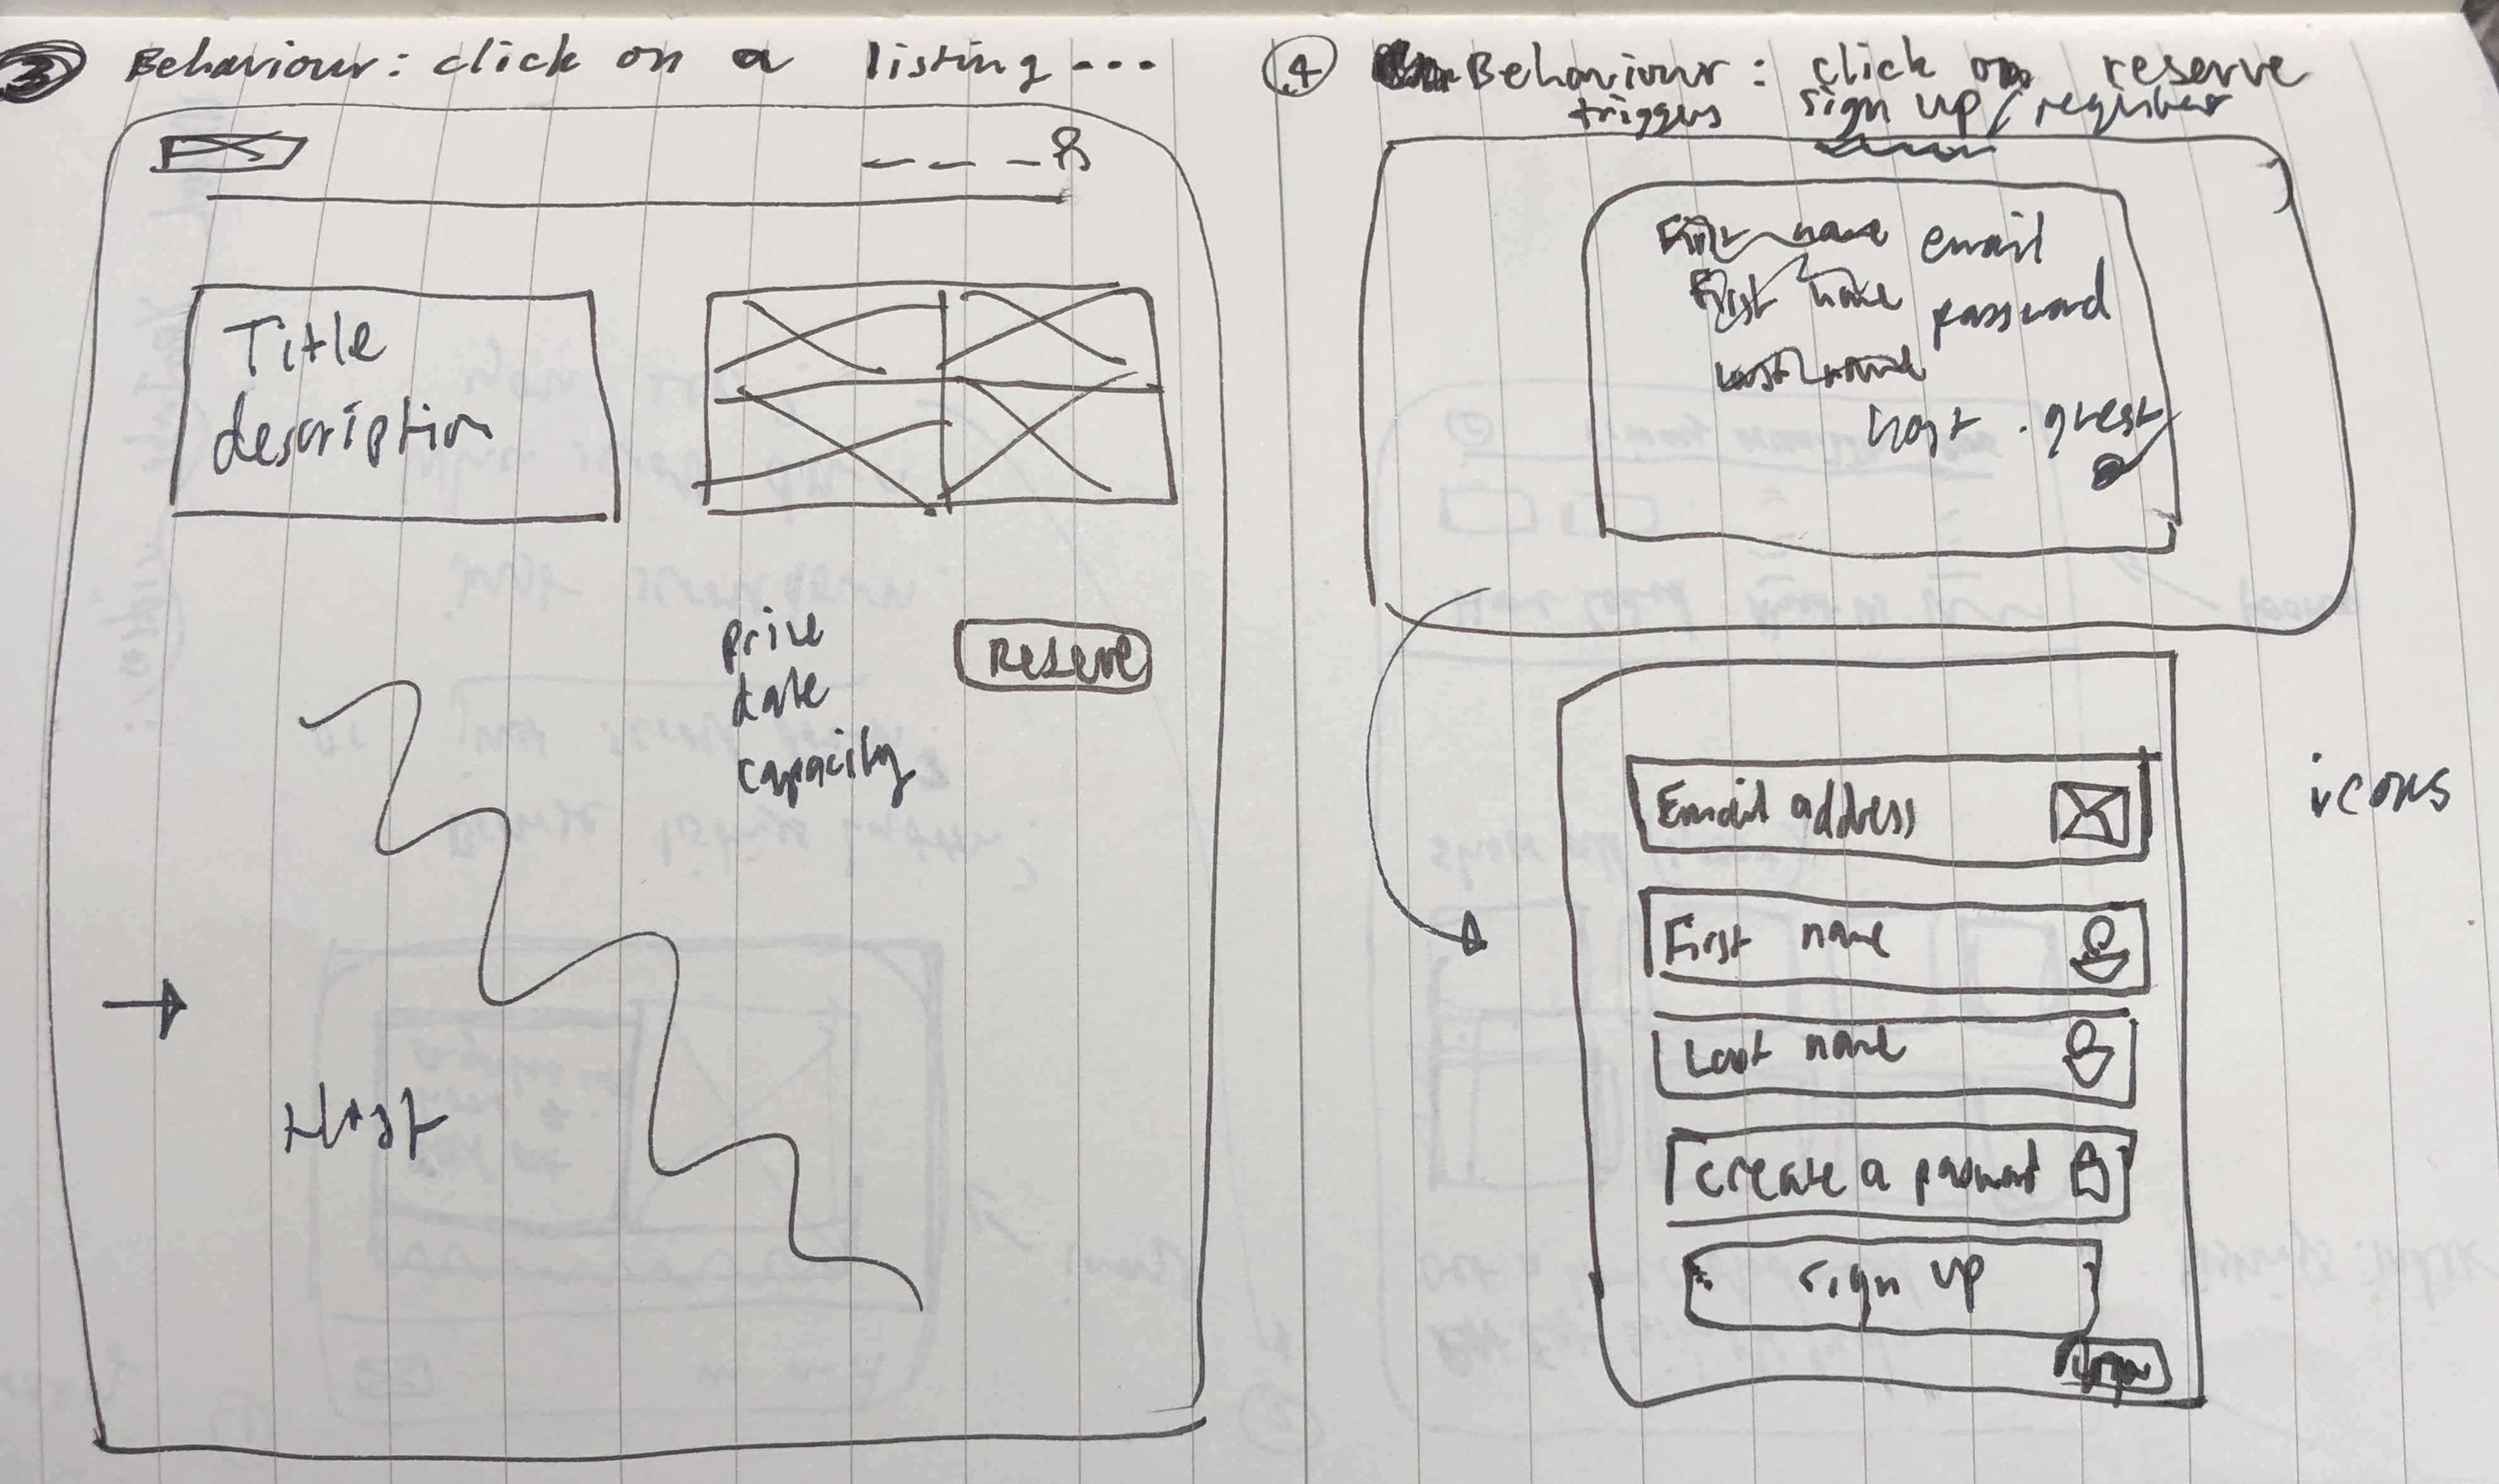 3 Behaviour: click on a listing ...
Title
description
price
date
capacity
Reserve
Host
4 Behaviour: click on reserve
triggers sign up / register
First name email
First name password
Last name
host . guest
Email address
icons
First name
Last name
create a password
sign up